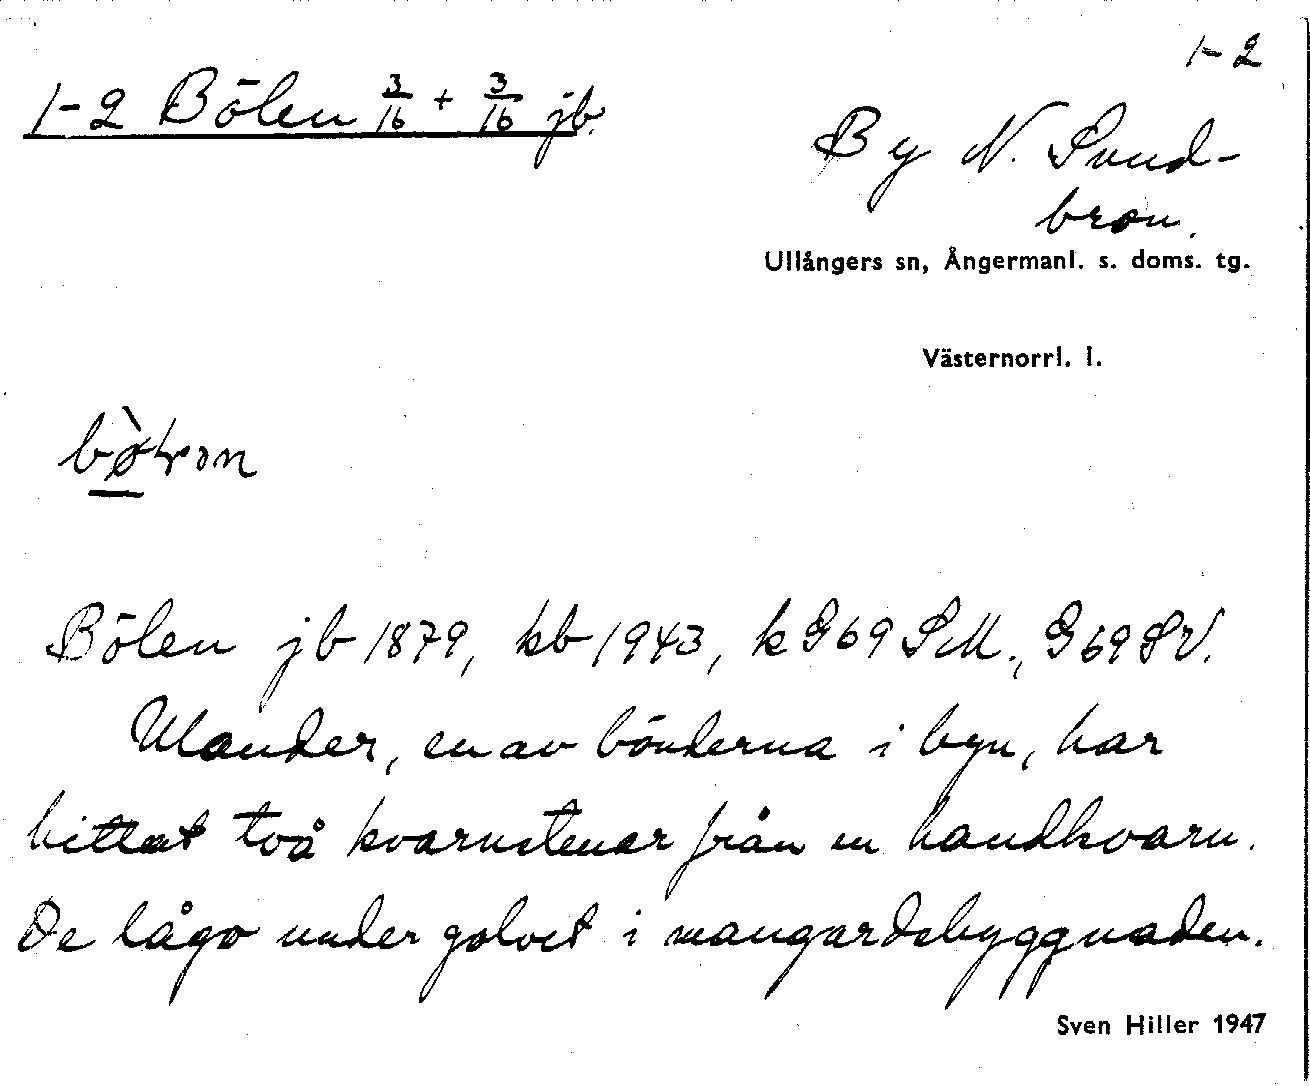 1-2
1-2 Bölen 3/16 + 3/16 jb.
By N. Sund-
bron.
Ullångers sn, Ångermanl. s. doms. tg.
Västernorrl. l.
Bölen jb 1879, kb 1943, k G69 SM., G69SV.
Ulander, en av bönderna i byn, har
hittat två kvarnstenar från en handkvarn.
De lågo under golvet i mangårdsbyggnaden.
Sven Hiller 1947